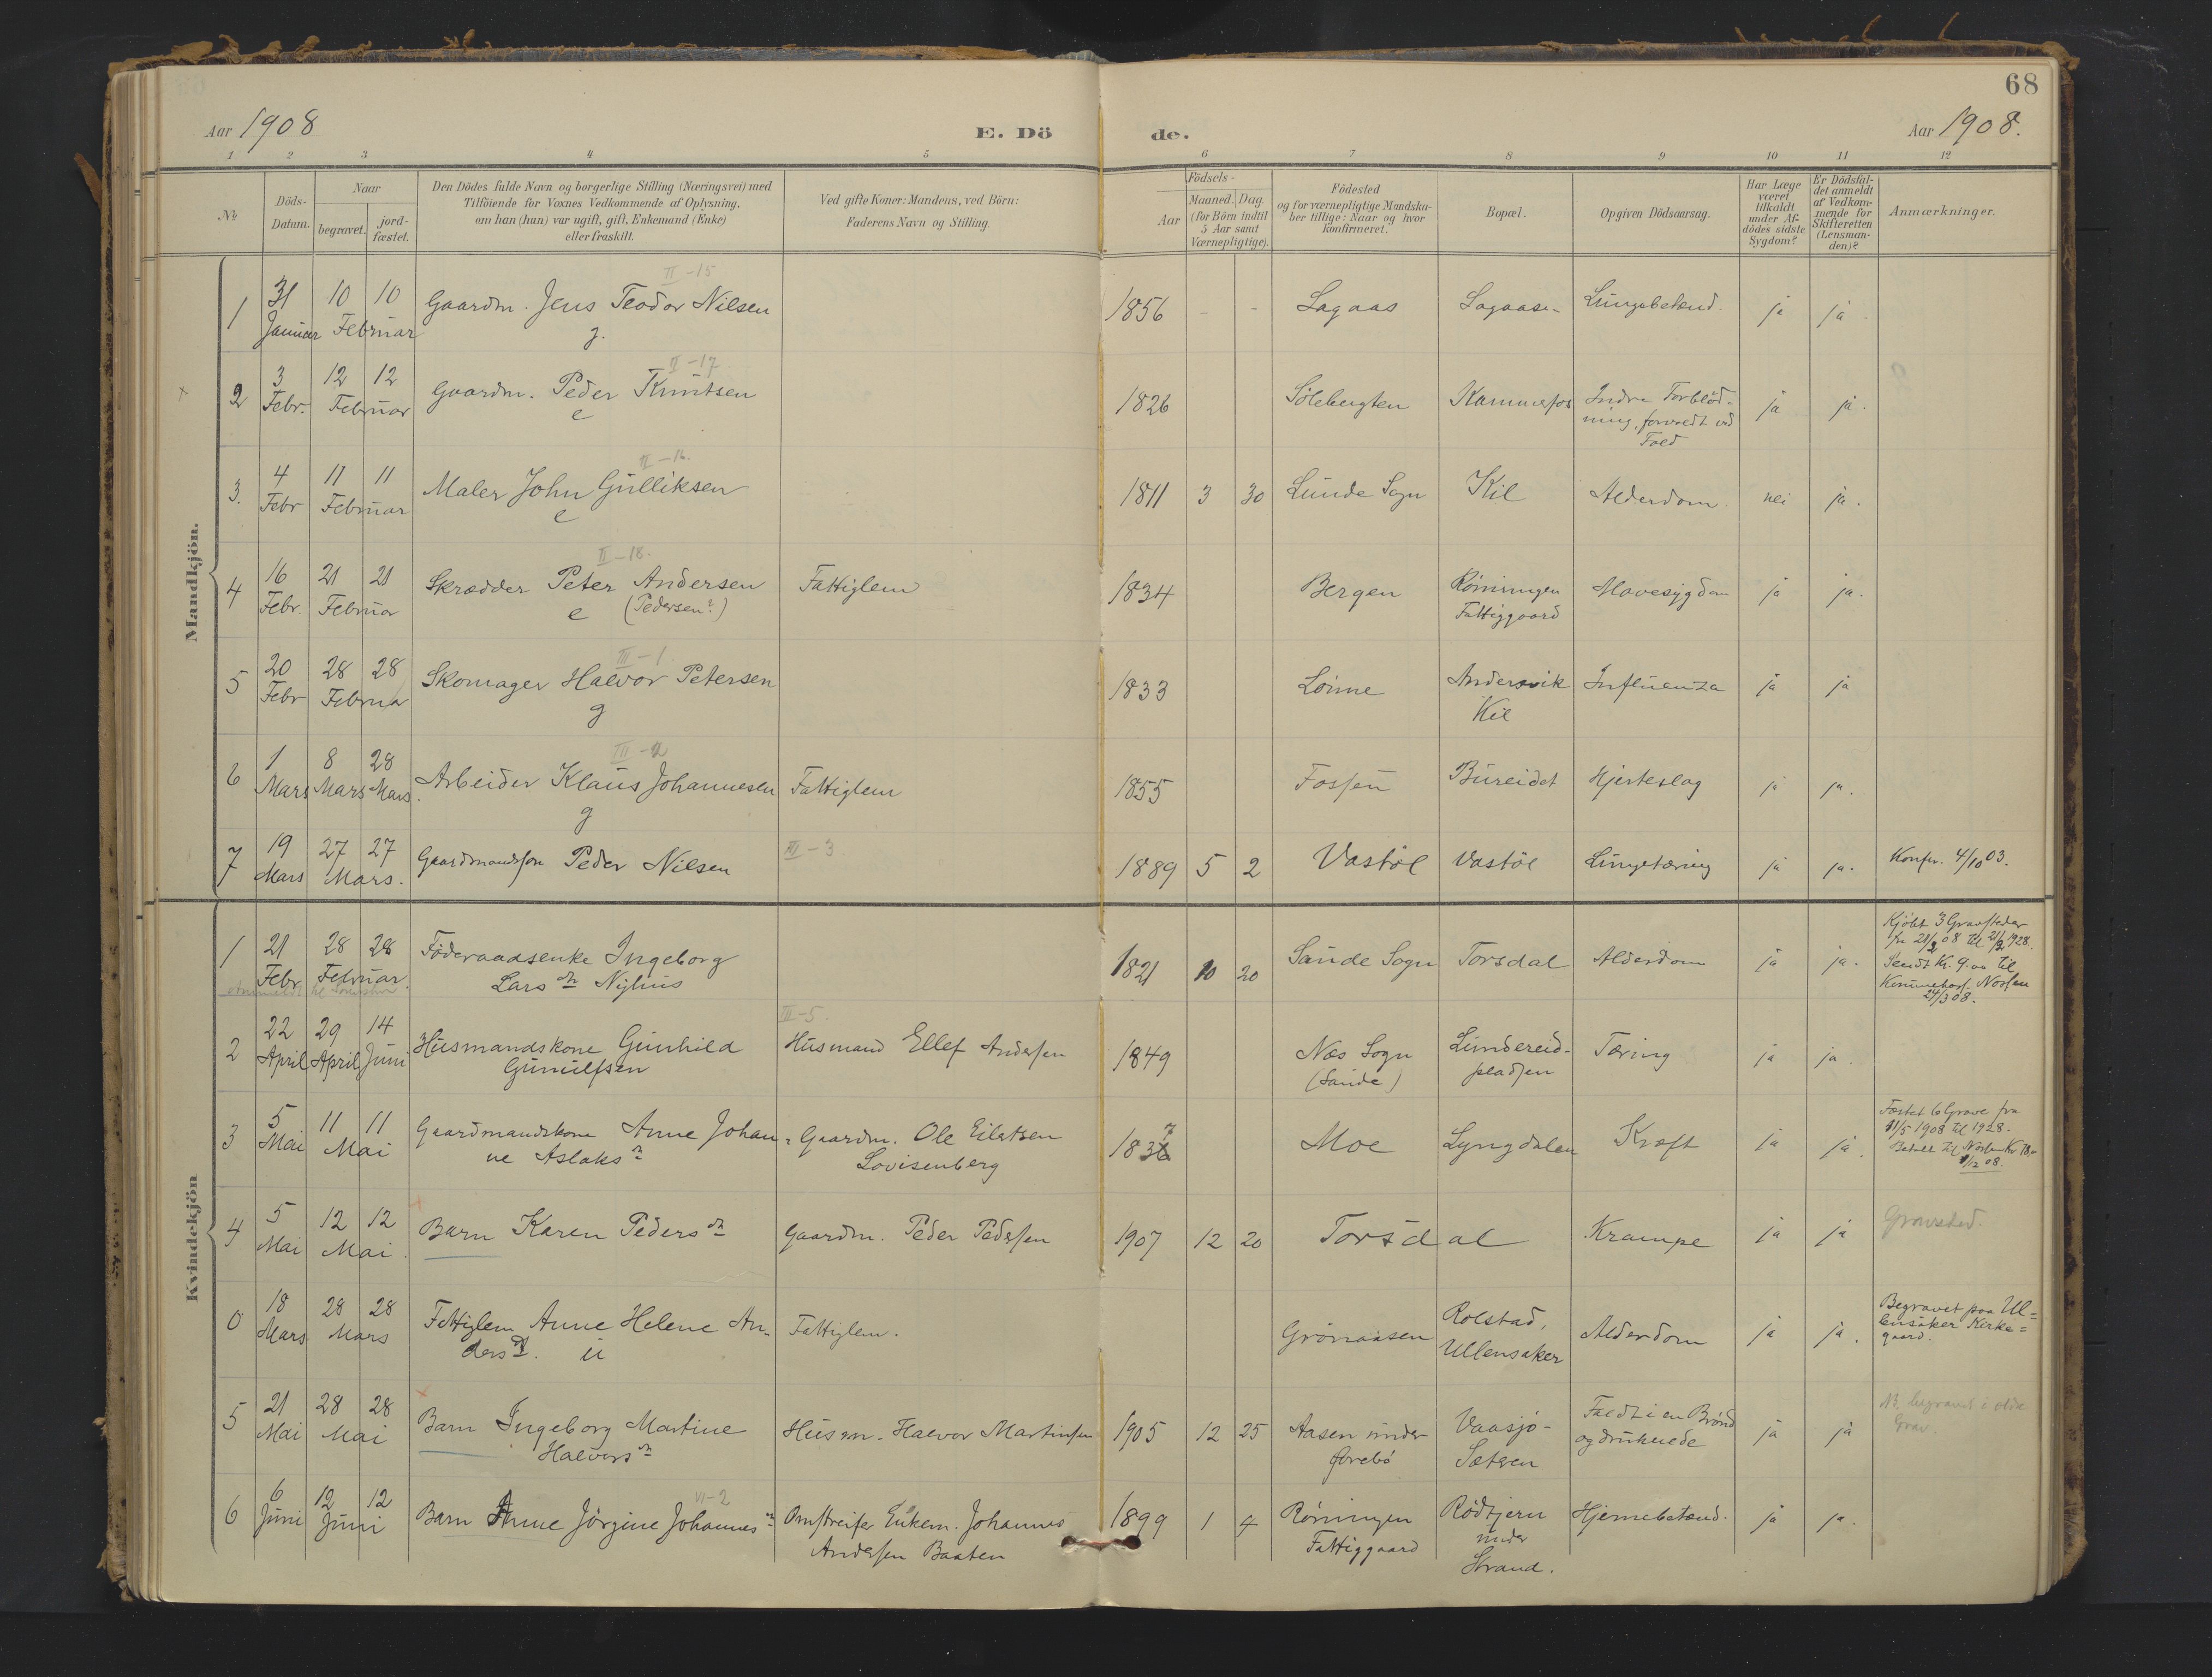 68
Aar 1908
E. Dö
de.
Aar 1908.
1 2 3 4 5 6 7 8 9 10 11 12
No
Döds-
Datum.
Naar
begravet.
jord-
fæstet.
Den Dödes fulde Navn og borgerlige Stilling (Næringsvei) med
Tilföiende for Voxnes Vedkommende af Oplysning,
om han (hun) var ugift, gift, Enkemand (Enke)
eller fraskilt.
Ved gifte Koner: Mandens, ved Börn:
Faderens Navn og Stilling.
Födsels-
Aar
Maaned. Dag.
(for Börn indtil
5 Aar samt
Værnepligtige).
Födested
og for værnepligtige Mandska-
ber tillige: Naar og hvor
konfirmeret.
Bopæl.
Opgiven Dödsaarsag.
Har Læge
været
tilkaldt
under Af-
dödes sidste
Sygdom?
Er Dödsfal-
det anmeldt
af Vedkom-
mende for
Skifteretten
(Lensman-
den)?
Anmærkninger.
Mandkjön.
II-15
1 31 10 10 Gaardm. Jens Teodor Nilsen 1856 - - Lagaas Lagaas Lungebetænd. ja ja.
Januar Februar g.
II-17
2 3 12 12 Gaardm. Peder Knutsen 1826 Kammerfos Indre Forblød- ja ja.
Febr. Februar e ning, forvoldt ved
Fald
II-16.
3. 4 11 11 Maler John Gulliksen 1811 3 30 Lunde Sogn Kil Alderdom nei ja.
Febr Februar e
II-18.
4 16 21 21 Skrædder Peter Andersen Fattiglem 1834 Bergen Rønningen Mavesygdom ja ja.
Febr. Februar e (Pedersen?) Fattiggaard
III-1
5 20 28 28 Skomager Halvor Petersen 1833 Andersvik Influenza ja ja
Febr Februar g Kil
III-2
6 1 8 28 Arbeider Klaus Johannesen Fattiglem 1855 Fossen Bureidet Hjerteslag ja ja.
Mars Mars Mars g
7 19 27 27 Gaardmandssøn Peder Nilsen III-3 1889 5 2 Vastöl Vastöl Lungetæring ja ja. Konfir. 4/10 03.
Mars Mars.
Kvindekjön
1 21 28 28 Föderaadsenke Ingeborg 1821 10 20 Sande Sogn Torsdal Alderdom ja ja. Kjöbt 3 Gravsteder
Febr Februar. Lars dn Nyhus fra 21/2 08 til 21/2 1928.
Sendt Kr. 9.00 til
24/3 08.
III-5.
2 22 29 14 Husmandskone Gunhild Husmand Ellef Andersen 1849 Næs Sogn Lundereid- Tæring ja ja.
April April Juni Gunulfsen (Sande) pladsen
3 5 11 11 Gaardmandskone Anne Johan- Gaardm. Ole Eilertsen 1837 Moe Lyngdalen Kræft ja ja. Fæstet 6 Grave fra
Mai Mai ne Aslaks dn Lovisenberg 11/5 1908 til 1928.
Betalt til
1/12 08.
4 5 12 12 Barn Karen Peders dn Gaardm. Peder Pedersen 1907 12 20 Torsdal Krampe ja ja Gravsted.
Mai Mai.
0 18 28 28 Fattiglem Anne Helene An- Fattiglem. Grönaasen Rolstad, Alderdom ja ja. Begravet paa Ul=
Mars Mars ders dt. u Ullensaker lensaker Kirke=
gaard.
5 21 28 28 Barn Ingeborg Martine Husm. Halvor Martinsen 1905 12 25 Aasen under Vaasjö- Faldt i en Brönd ja ja begravet i
Mai Mai Halvors dn Sætren og druknede Grav.
VI-2
6 6 12 12 Barn Anne Jörgine Johannes dn Omstreifer Enkem. Johannes 1899 1 4 Rønningen Rödtjern Hjernebetænd. ja ja.
Juni Juni Andersen Baaten Fattiggaard under
Strand.